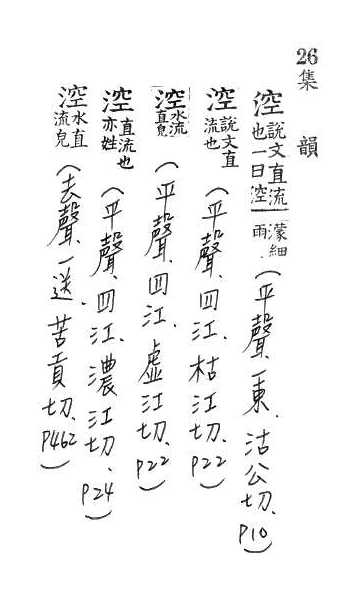 26
集韻
涳 說文直流也一曰涳濛細雨.(平聲、一東、沽公切、P10)
涳 說文直流也(平聲、四江、枯江切、P22)
涳 水流直皃(平聲、四江、虛江切、P22)
涳 直流也亦姓(平聲、四江、濃江切、P24)
涳 水直流皃(去聲、一送、苦貢切、P462)